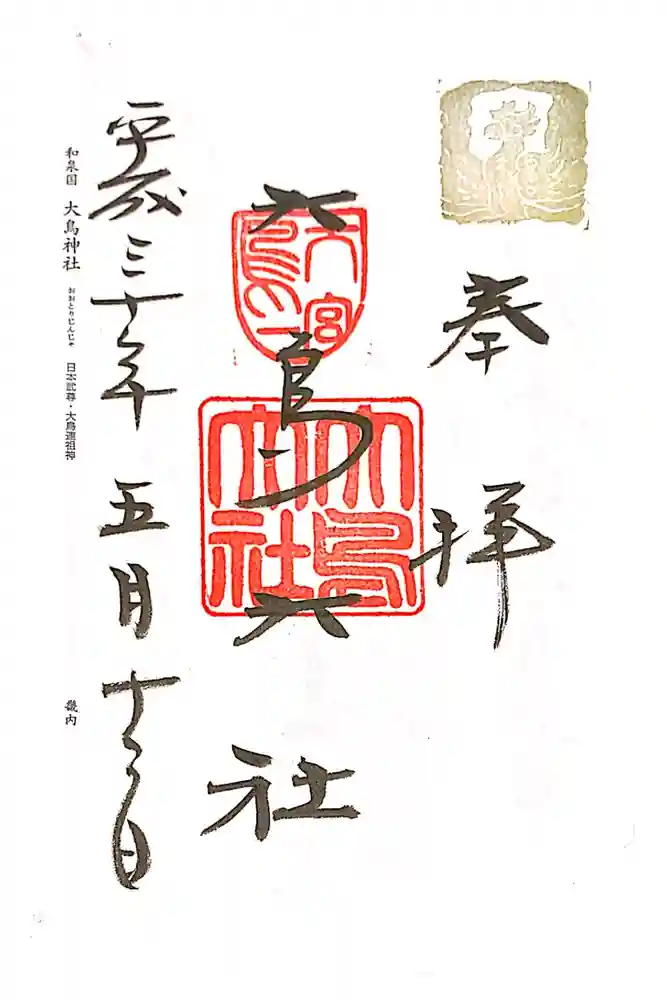 奉拝
大鳥大社
大鳥一宮
大鳥大社
平成三十年五月十二日
和泉国 大鳥神社 おおとりじんじゃ 日本武尊・大鳥連祖神 畿内